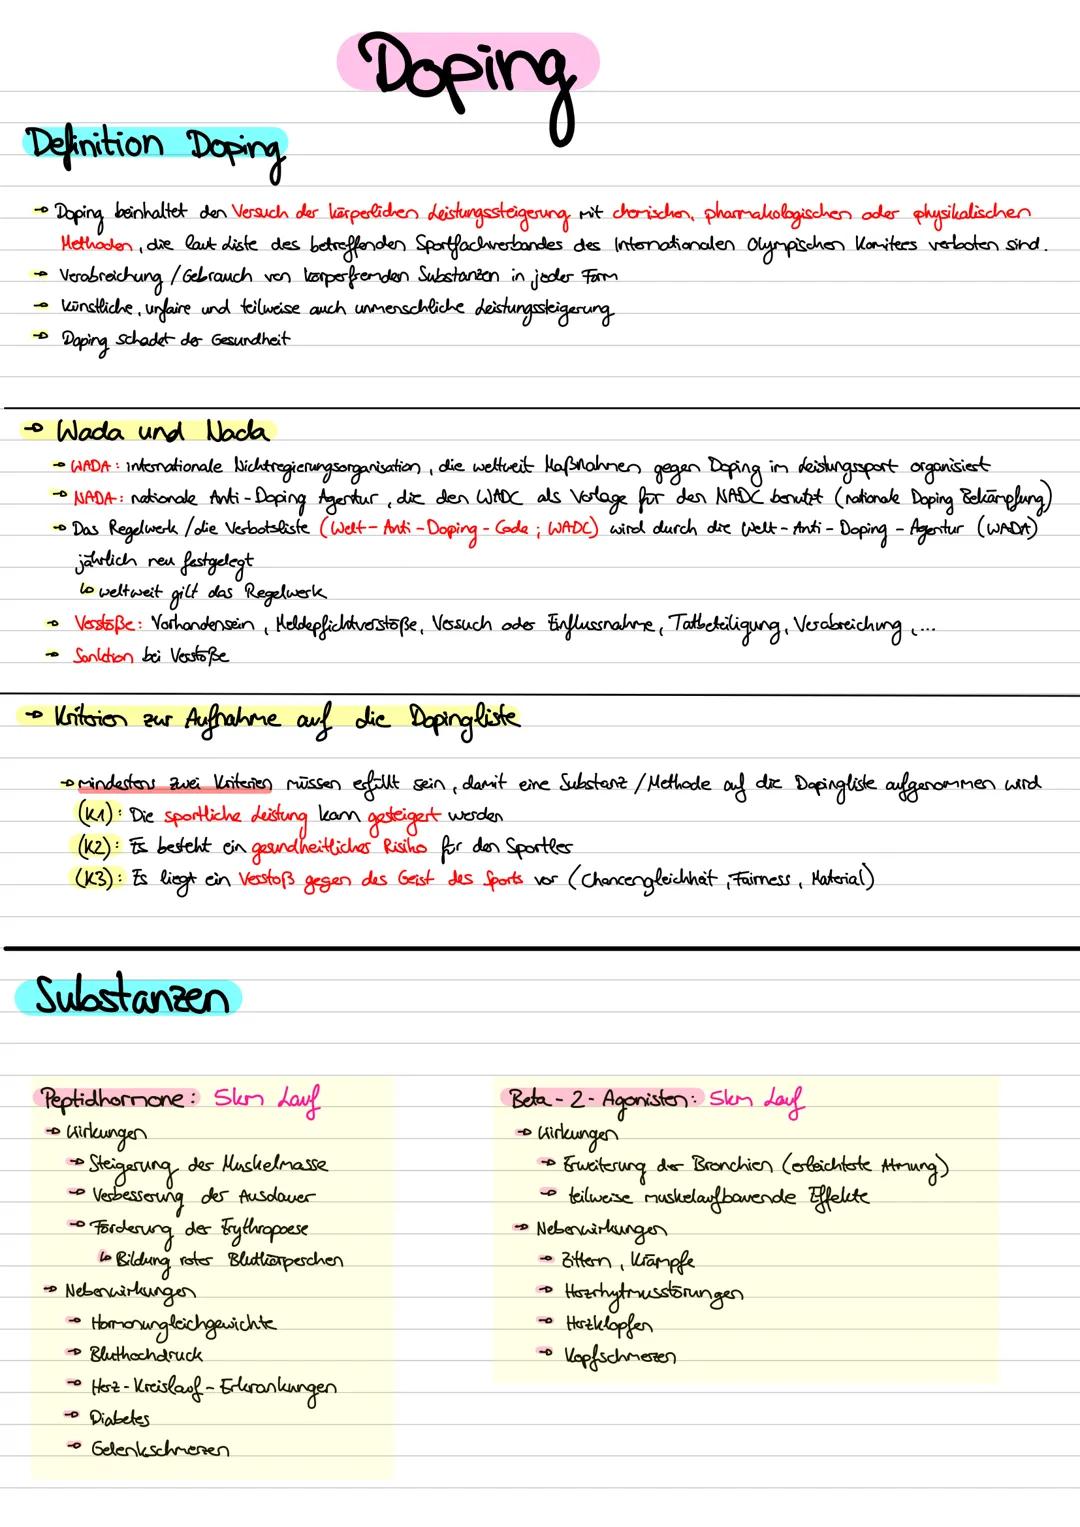 Doping
Definition Doping
→ Doping beinhaltet den Versuch der körperlichen Leistungssteigerung mit chemischen, pharmakologischen oder physikalischen
Methoden, die laut Liste des betreffenden Sportfachverbandes des Internationalen Olympischen Komitees verboten sind.
→ Verabreichung / Gebrauch von körperfremden Substanzen in jeder Form
→ künstliche, unfaire und teilweise auch unmenschliche Leistungssteigerung
→ Doping schadet der Gesundheit
→ Wada und Nada
→ WADA: internationale Nichtregierungsorganisation, die weltweit Maßnahmen gegen Doping im Leistungssport organisiert
→ NADA: nationale Anti-Doping Agentur, die den WADC als Vorlage für den NADC benutzt (nationale Doping Bekämpfung)
→ Das Regelwerk / die Verbotsliste (Welt-Anti-Doping-Code; WADC) wird durch die Welt-Anti-Doping-Agentur (WADA)
jährlich neu festgelegt
↳ weltweit gilt das Regelwerk
→ Verstöße: Vorhandensein, Meldepflichtverstöße, Versuch oder Einflussnahme, Tatbeteiligung, Verabreichung, ...
→ Sanktion bei Verstöße
→ Kriterien zur Aufnahme auf die Dopingliste
→ mindestens zwei Kriterien müssen erfüllt sein, damit eine Substanz / Methode auf die Dopingliste aufgenommen wird
(K1): Die sportliche Leistung kann gesteigert werden
(K2): Es besteht ein gesundheitliches Risiko für den Sportler
(K3): Es liegt ein Verstoß gegen des Geist des Sports vor (Chancengleichheit, Fairness, Material)
Substanzen
Peptidhormone: 5km Lauf
→ Wirkungen
→ Steigerung der Muskelmasse
→ Verbesserung der Ausdauer
→ Förderung der Erythropoese
↳ Bildung roter Blutkörperchen
→ Nebenwirkungen
→ Hormonungleichgewichte
→ Bluthochdruck
→ Herz-Kreislauf-Erkrankungen
→ Diabetes
→ Gelenkschmerzen
Beta-2-Agonisten: 5km Lauf
→ Wirkungen
→ Erweiterung der Bronchien (erleichterte Atmung)
→ teilweise muskelaufbauende Effekte
→ Nebenwirkungen
→ Zittern, Krämpfe
→ Herzrhytmusstörungen
→ Herzklopfen
→ Kopfschmerzen